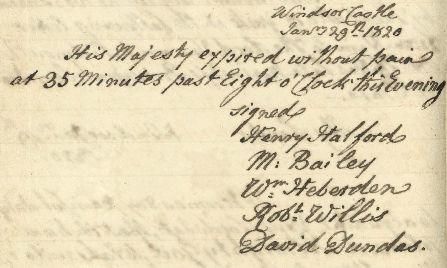 Windsor Castle
Jany 29th 1820
His Majesty expired without pain
at 35 Minutes past Eight o'Clock this Evening
signed
Henry Halford
M. Bailey
Wm Heberden
Robt. Willis
David Dundas.